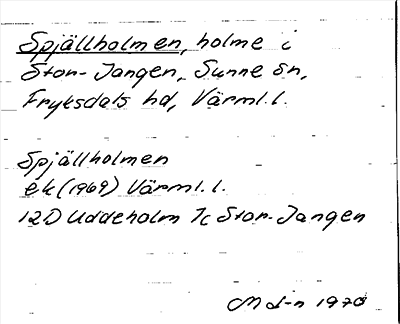 Spjällholmen, holme i
Stor-Jangen, Sunne sn,
Fryksdals hd, Värml. l.
Spjällholmen
ek (1969) Värml. l.
12D Uddeholm 7c Stor-Jangen
M L-n 1970